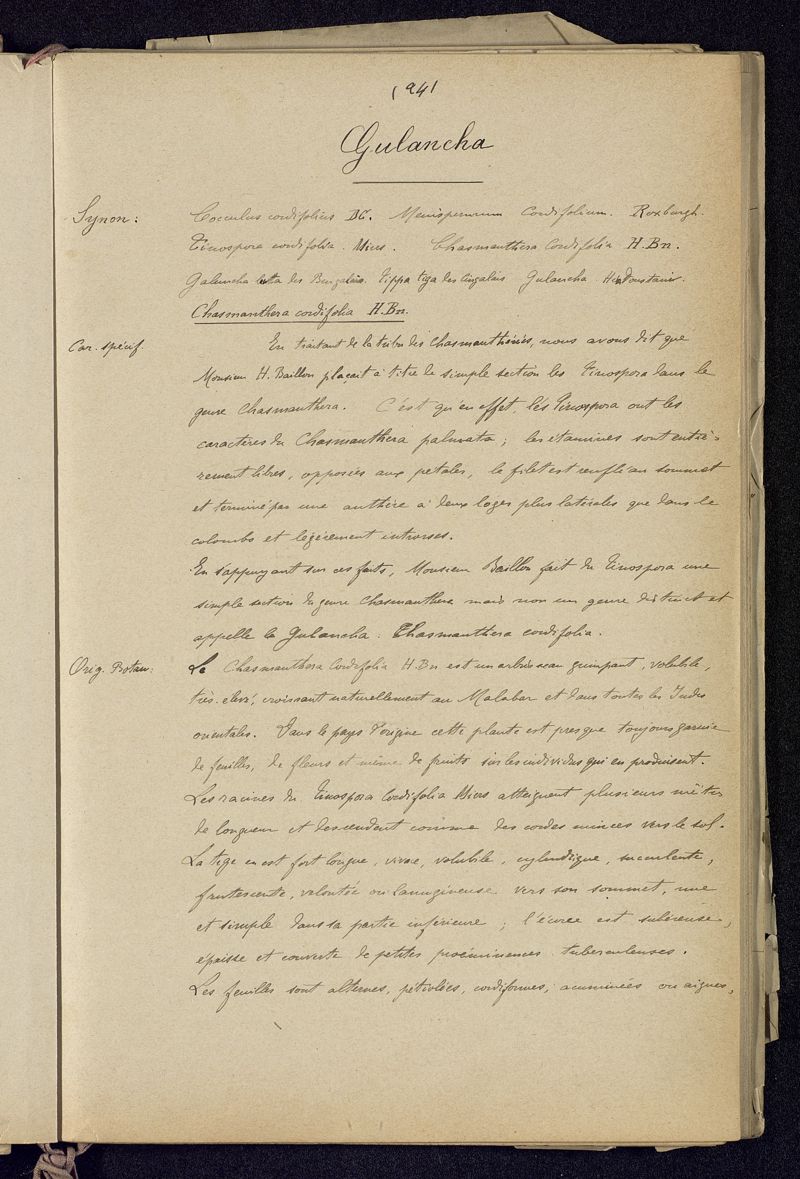 (94)
Gulancha
Synon: Cocculus cordifolius DC. Menispermum Cordifolium. Roxburgh.
Tinospora cordifolia. Miers. Chasmanthera Cordifolia H.Bn.
Galuncha des Bengalais. Tippa tiga des Cingalais Gulancha Hindoustanis.
Chasmanthera cordifolia H.Bn.
Car. spécif. En traitant de la tribu des Chasmanthérées, nous avons dit que
Monsieur H. Baillon plaçait à titre de simple section les Tinospora dans le
genre Chasmanthera. C'est qu'en effet, les Tinospora ont les
caractères du Chasmanthera palmata; les étamines sont entiè-
rement libres, opposées aux pétales, le filet est renflé au sommet
et terminé par une anthère à deux loges plus latérales que dans le
colombo et légèrement introrses.
En s'appuyant sur ces faits, Monsieur Baillon fait du Tinospora une
simple section du genre Chasmanthera mais non un genre distinct et
appelle le Gulancha: Chasmanthera cordifolia.
Orig. Botan: Le Chasmanthera Cordifolia H.Bn est un arbrisseau grimpant, volubile,
très élevé, croissant naturellement au Malabar et dans toutes les Indes
orientales. Dans le pays d'origine cette plante est presque toujours garnie
de feuilles, de fleurs et même de fruits sur les individus qui en produisent.
Les racines du Tinospora Cordifolia Miers atteignent plusieurs mètres
de longueur et descendent comme des cordes minces vers le sol.
La tige en est fort longue, vivace, volubile, cylindrique, succulente,
frutescente, veloutée ou lanugineuse vers son sommet, nue
et simple dans sa partie inférieure; l'écorce est subéreuse,
épaisse et couverte de petites proéminences tuberculeuses.
Les feuilles sont alternes, pétiolées, cordiformes, acuminées ou aigues,